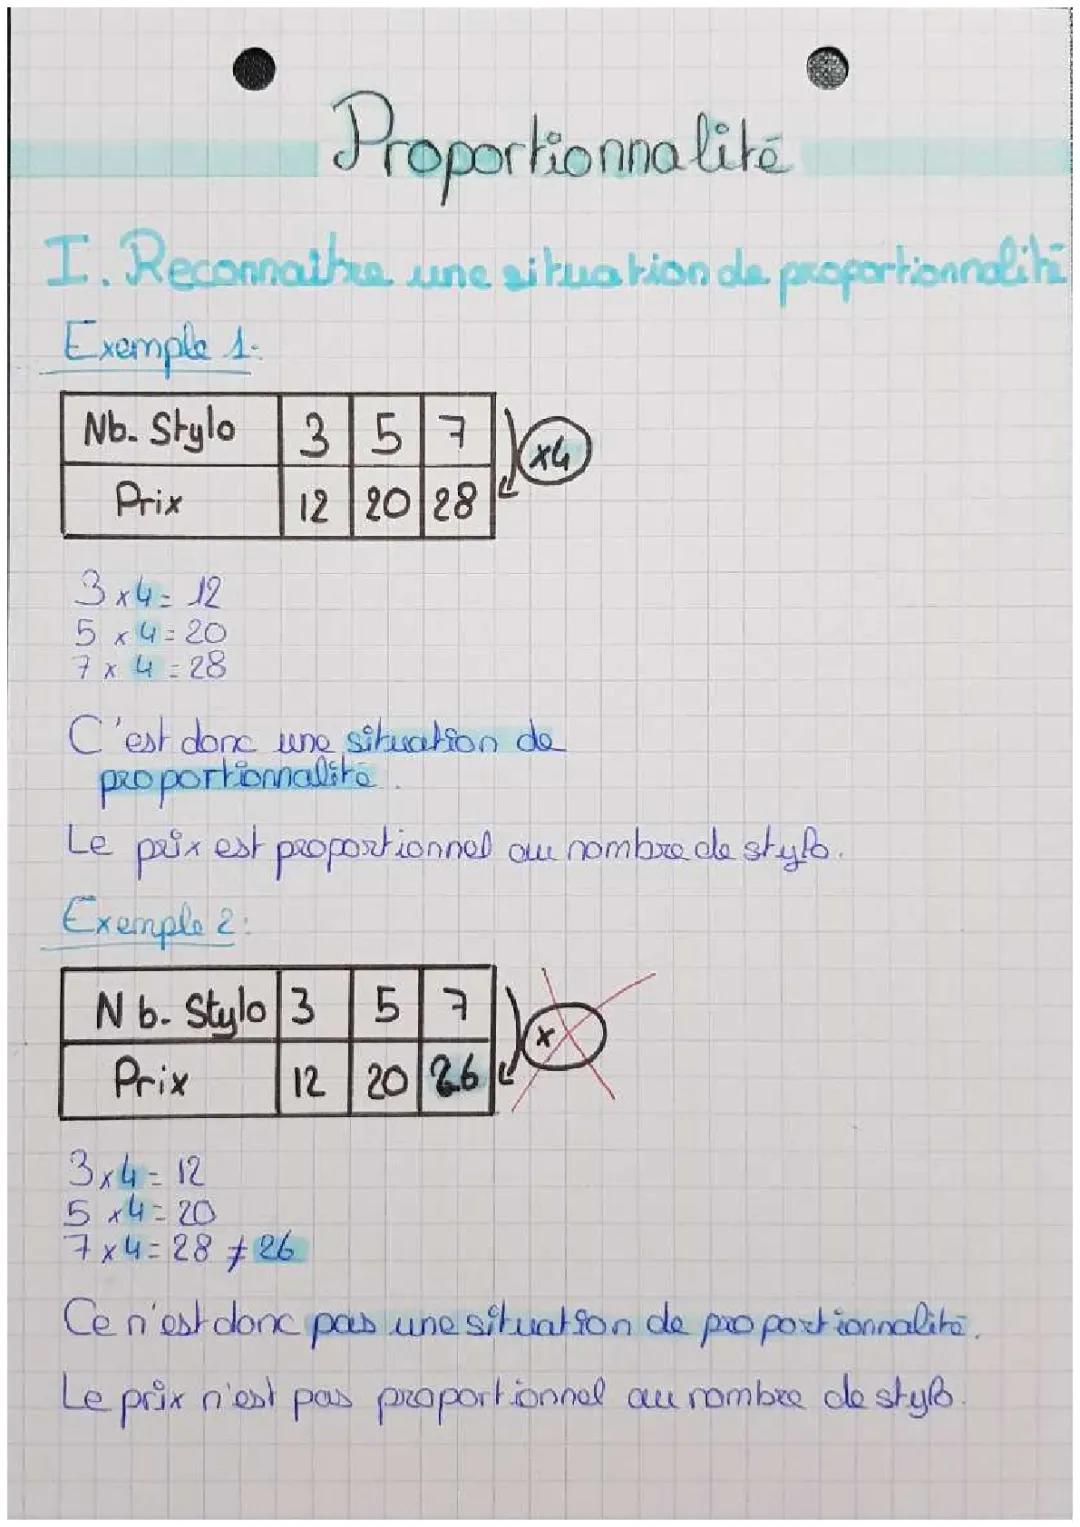 Proportionnalité
I. Reconnaître une situation de proportionnalité
Exemple 1:
Nb. Stylo 3 5 7
x4
Prix 12 20 28
3 x 4 = 12
5 x 4 = 20
7 x 4 = 28
C'est donc une situation de
proportionnalité.
Le prix est proportionnel au nombre de stylo.
Exemple 2:
Nb. Stylo 3 5 7
x
Prix 12 20 26
3 x 4 = 12
5 x 4 = 20
7 x 4 = 28 ≠ 26
Ce n'est donc pas une situation de proportionnalité.
Le prix n'est pas proportionnel au nombre de stylo.